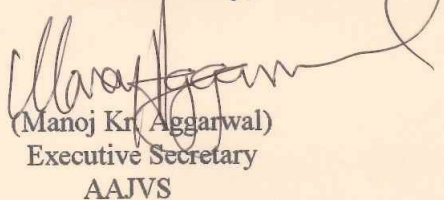 (Manoj Kr. Aggarwal)
Executive Secretary
AAJVS